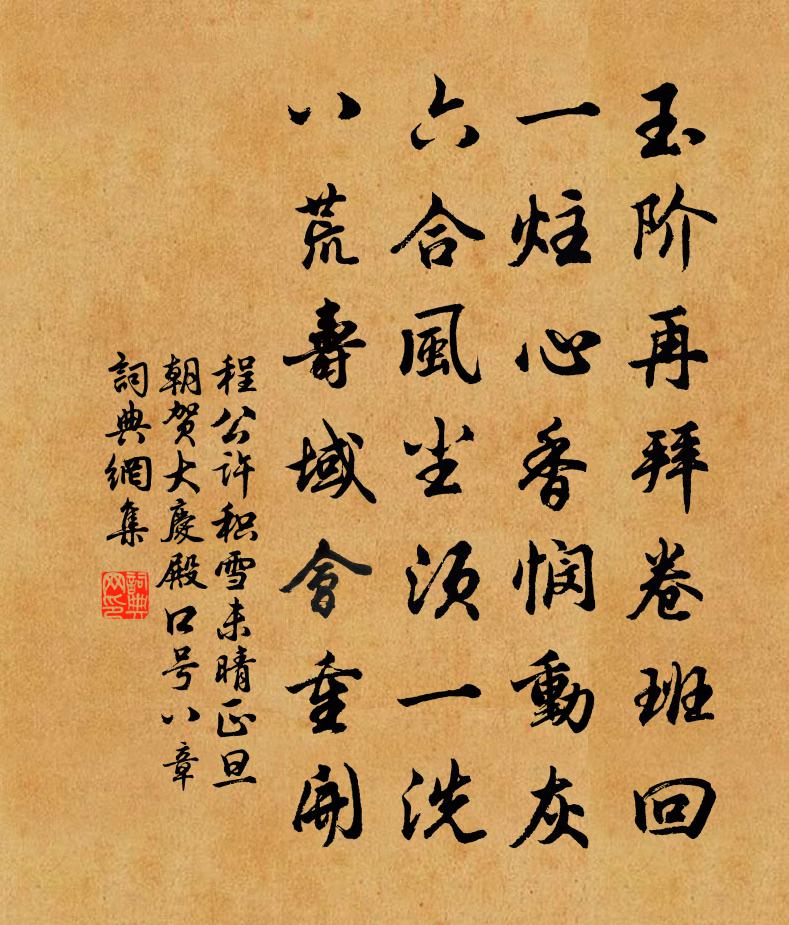 玉阶再拜卷班回
一炷心香悯動灰
六合風尘须一洗
八荒壽域會重開
程公许积雪未晴正旦
朝贺大慶殿口号八章
詞典網集
詞典网印